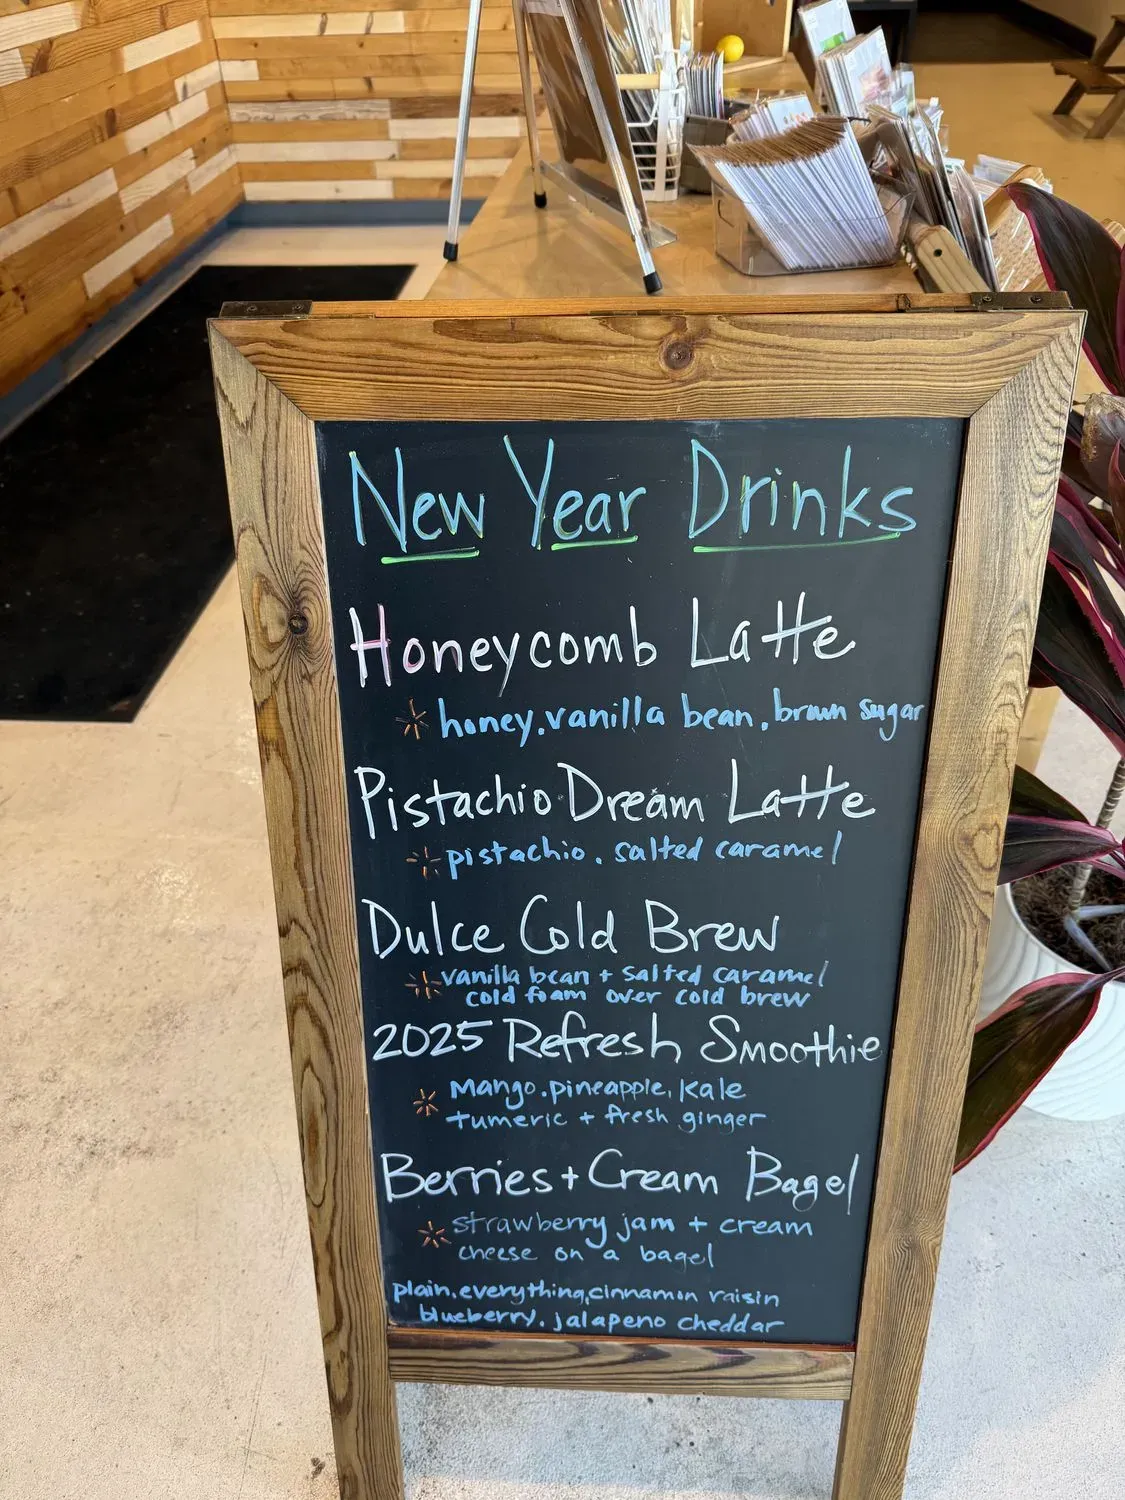 New Year Drinks
Honeycomb Latte
honey, vanilla bean, brown sugar
Pistachio Dream Latte
pistachio, salted caramel
Dulce Cold Brew
vanilla bean + salted caramel
cold foam over cold brew
2025 Refresh Smoothie
Mango, pineapple, kale
tumeric + fresh ginger
Berries + Cream Bagel
strawberry jam + cream
cheese on a bagel
plain, everything, cinnamon raisin
blueberry, jalapeno cheddar